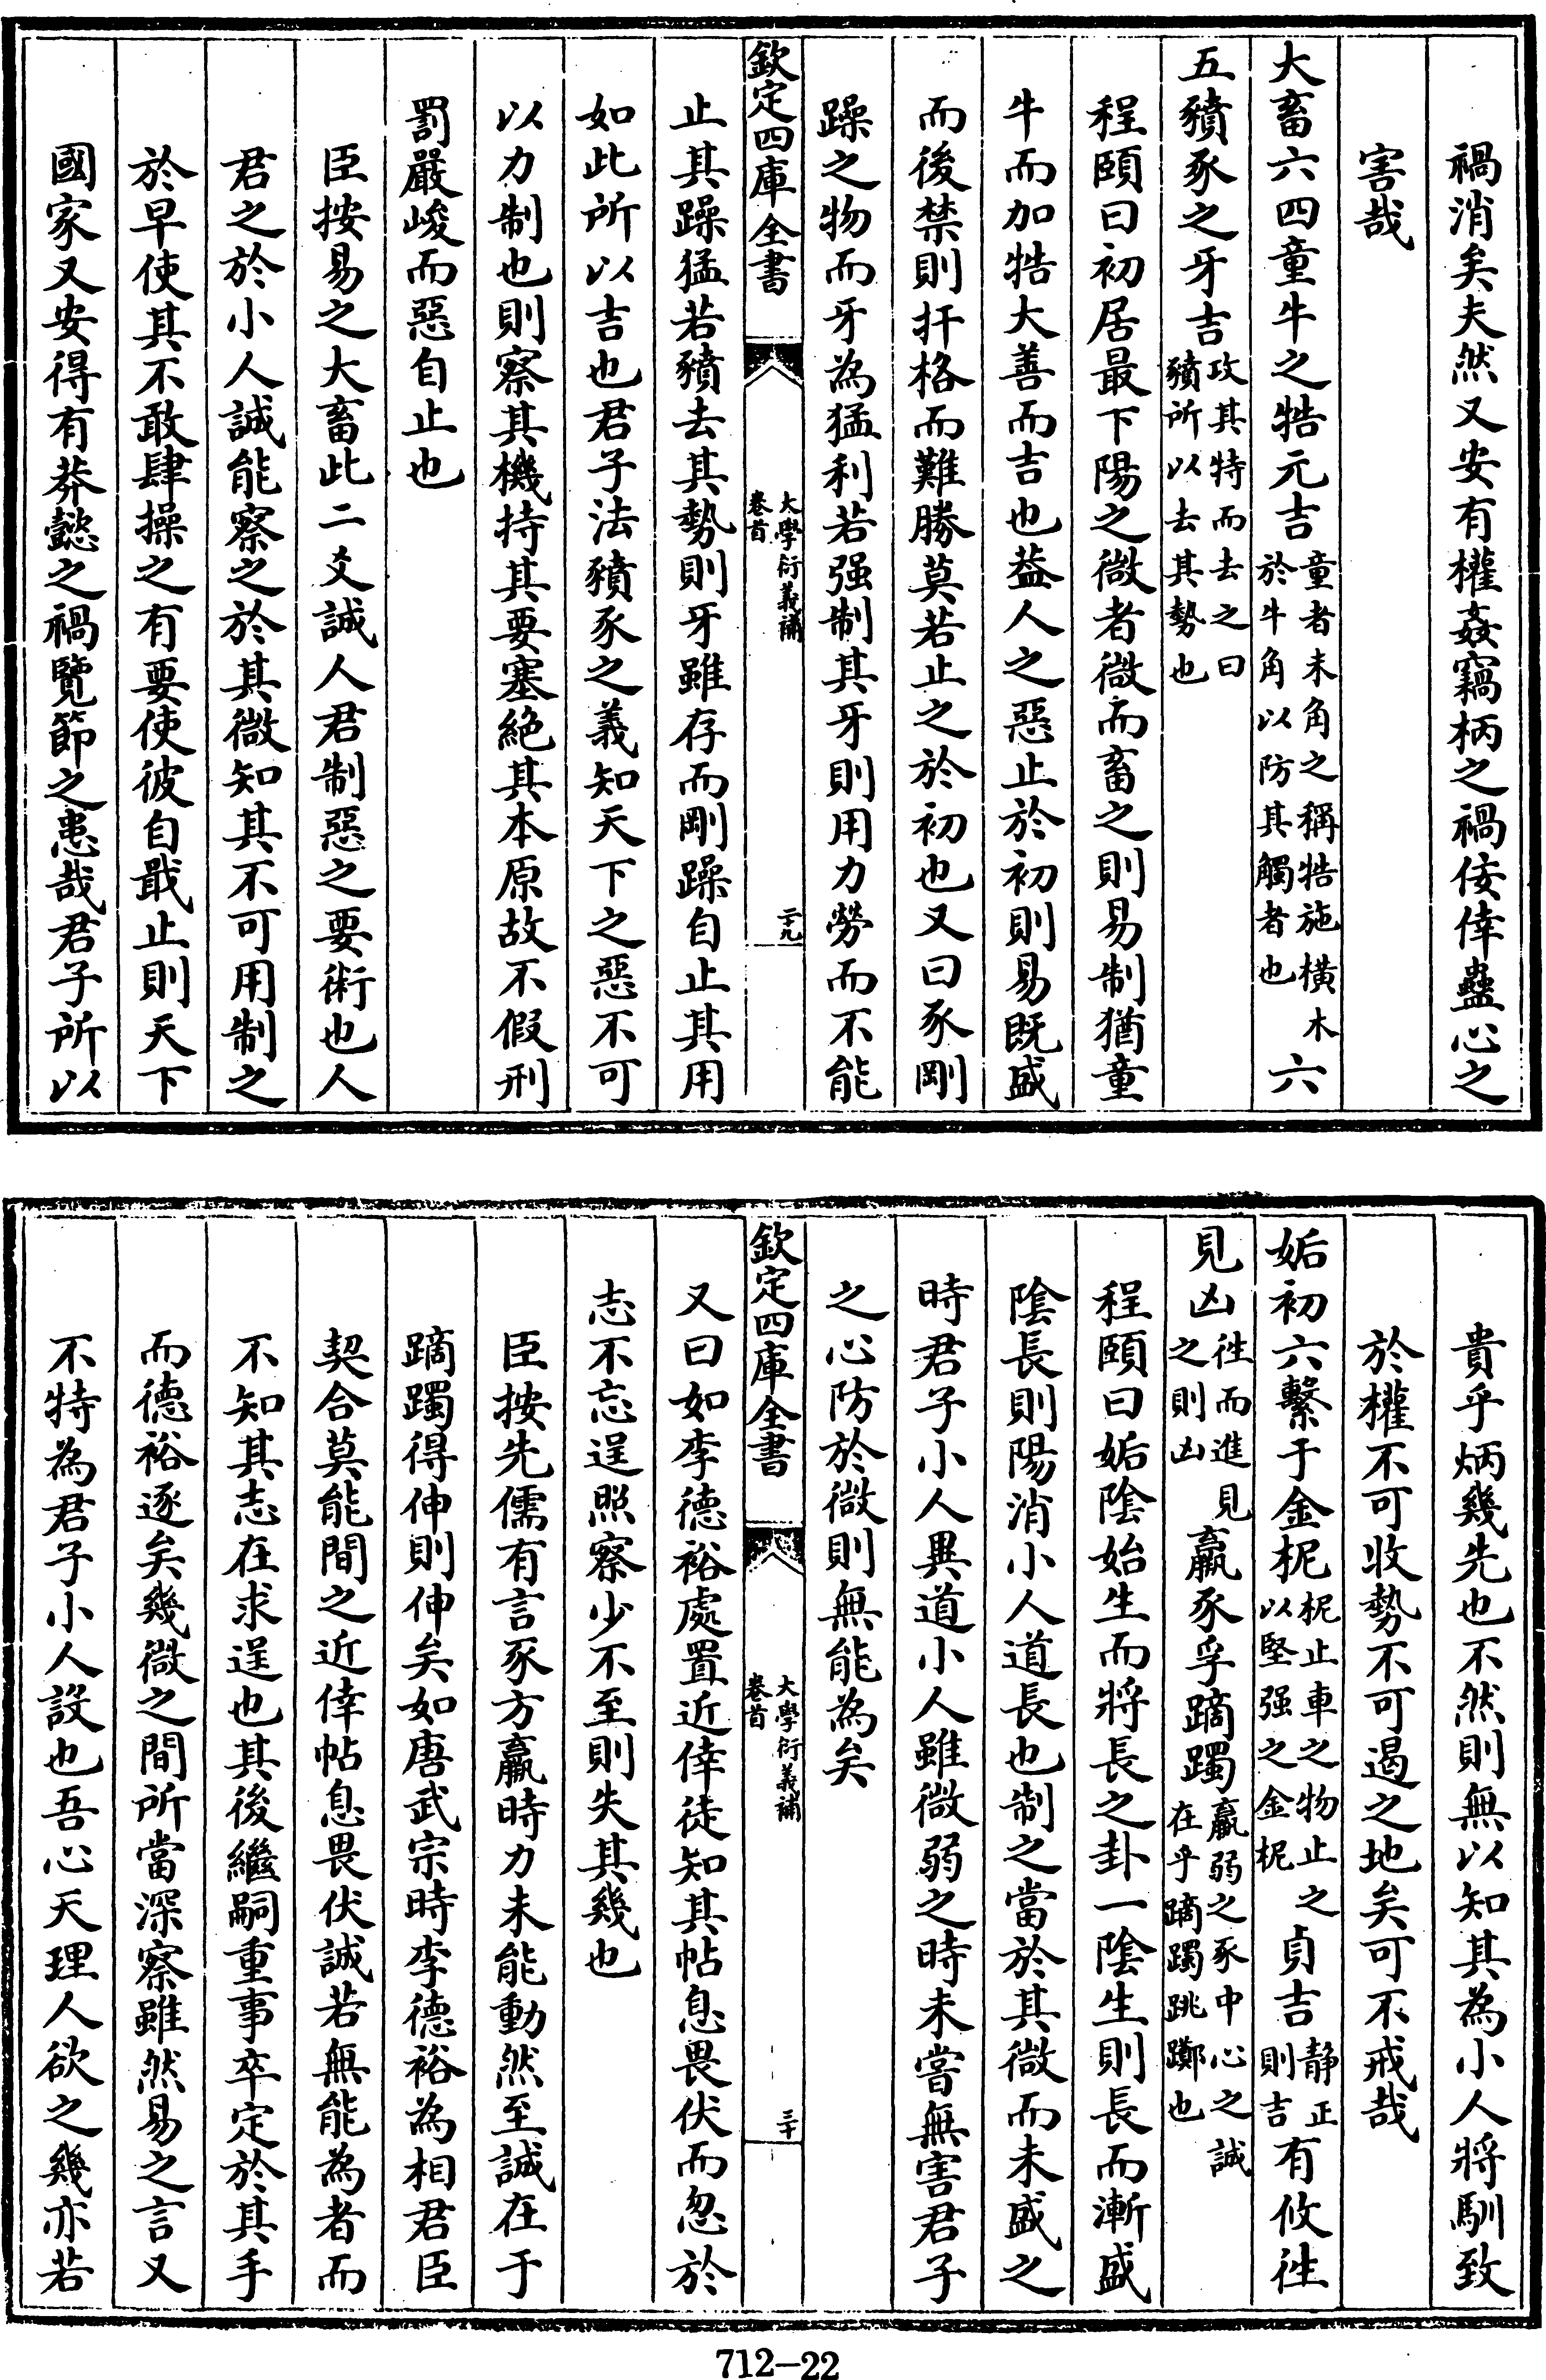 禍消矣夫然又安有權姦竊柄之禍佞倖蠱心之
害哉
大畜六四童牛之牿元吉童者未角之稱牿施橫木於牛角以防其觸者也六
五豶豕之牙吉攻其特而去之曰豶所以去其勢也
程頤曰初居最下陽之微者微而畜之則易制猶童
牛而加牿大善而吉也葢人之惡止於初則易既盛
而後禁則扞格而難勝莫若止之於初也又曰豕剛
躁之物而牙為猛利若强制其牙則用力勞而不能
欽定四庫全書
大學衍義補
卷首
二十九
止其躁猛若豶去其勢則牙雖存而剛躁自止其用
如此所以吉也君子法豶豕之義知天下之惡不可
以力制也則察其機持其要塞絶其本原故不假刑
罰嚴峻而惡自止也
臣按易之大畜此二爻誠人君制惡之要術也人
君之於小人誠能察之於其微知其不可用制之
於早使其不敢肆操之有要使彼自戢止則天下
國家又安得有莽懿之禍覽節之患哉君子所以
貴乎炳幾先也不然則無以知其為小人將馴致
於權不可收勢不可遏之地矣可不戒哉
姤初六繫于金柅柅止車之物止之以堅强之金柅貞吉静正則吉有攸徃
見凶徃而進見之則凶羸豕孚蹢躅羸弱之豕中心之誠在乎蹢躅跳躑也
程頤曰姤陰始生而將長之卦一陰生則長而漸盛
陰長則陽消小人道長也制之當於其微而未盛之
時君子小人異道小人雖微弱之時未嘗無害君子
之心防於微則無能為矣
欽定四庫全書
大學衍義補
卷首
三十
又曰如李德裕處置近倖徒知其帖息畏伏而忽於
志不忘逞照察少不至則失其幾也
臣按先儒有言豕方羸時力未能動然至誠在于
蹢躅得伸則伸矣如唐武宗時李德裕為相君臣
契合莫能間之近倖帖息畏伏誠若無能為者而
不知其志在求逞也其後繼嗣重事卒定於其手
而德裕逐矣幾微之間所當深察雖然易之言又
不特為君子小人設也吾心天理人欲之幾亦若
712-22